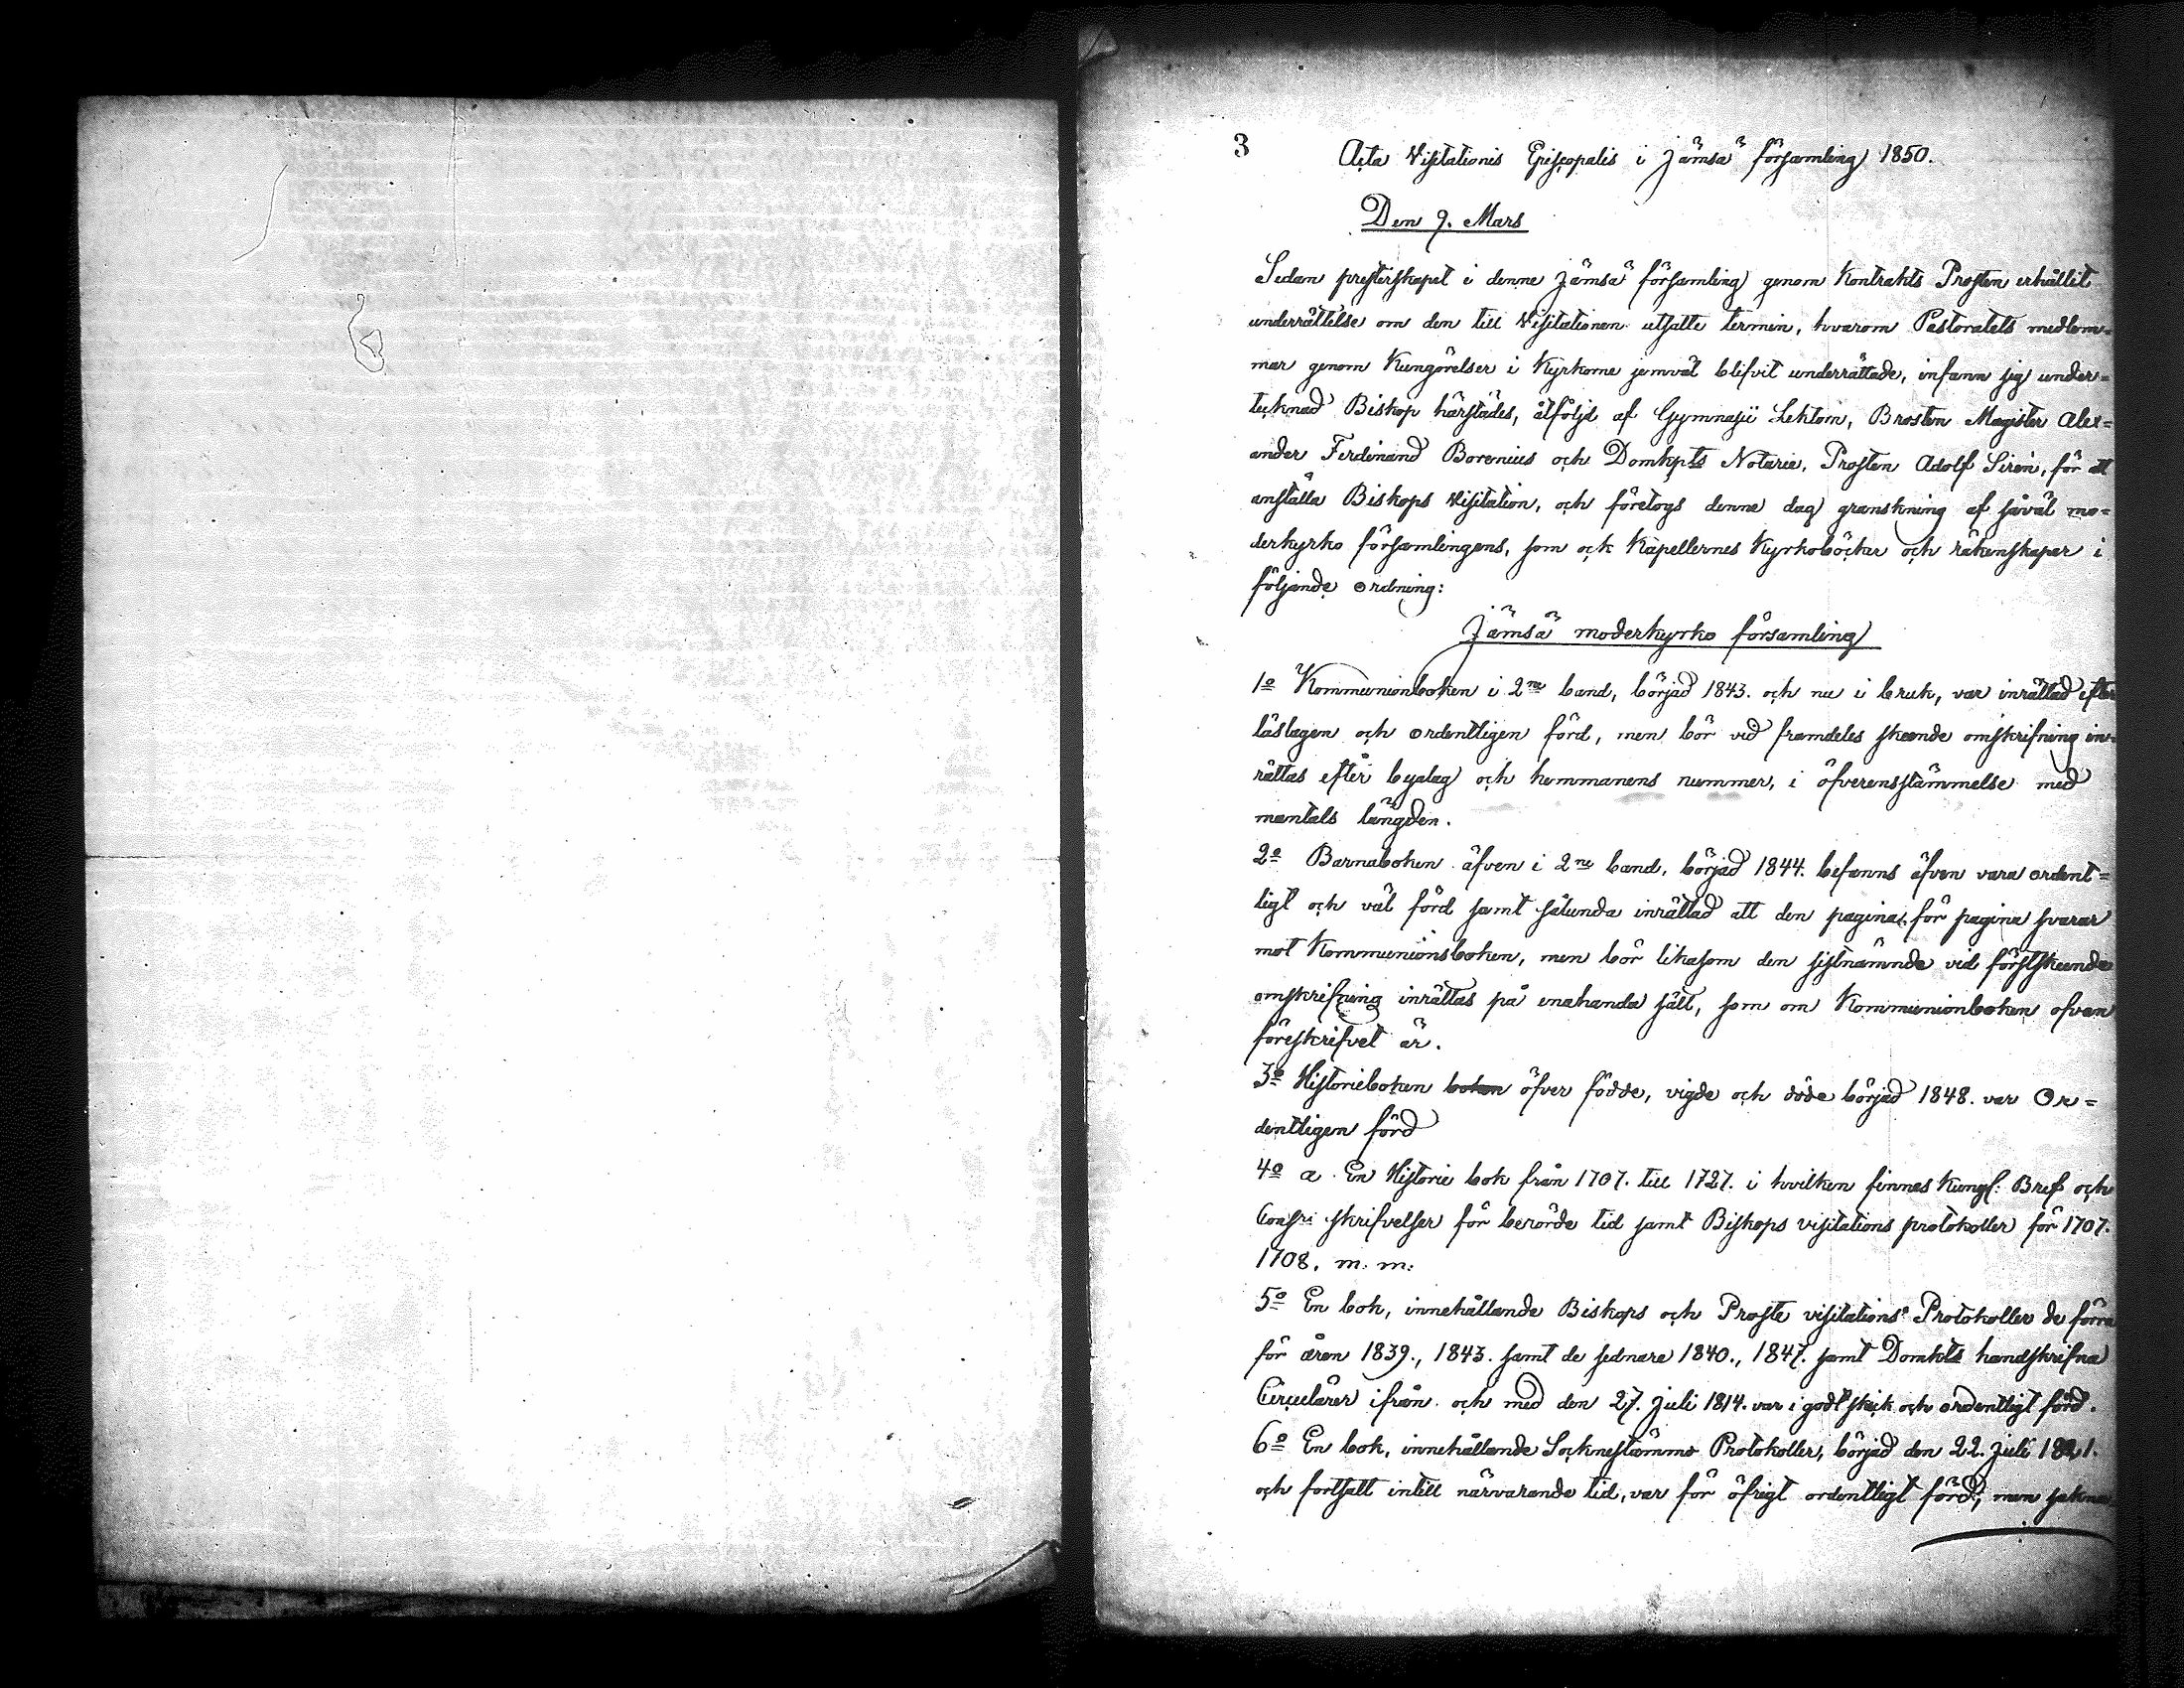 3
Acta Visitationis Episcopalis i Jämsä församling 1850.
Den 9. Mars
Sedan presterskapet i denne Jämsä församling genom Kontrakts Prosten erhållit
underrättelse om den till Visitationen utsatte termin, hvarom Pastoratets medlem-
mar genom Kungörelser i Kyrkorne jemväl blifvit underrättade, infann sig under-
tecknad Biskop härstädes, åtföljd af Gymnasii Lektorn, Prosten Magister Alex-
ander Ferdinand Borenius och Domkpts Notarie, Prosten Adolf Sirén, för att
anställa Biskops Visitation, och företogs denne dag granskning af såväl mo-
derkyrko församlingens, som ock Kapellernes Kyrkoböcker och räkenskaper i
följande ordning:
Jämsä moderkyrko församling
1o Kommunionboken i 2ne band, börjad 1843. och nu i bruk, var inrättad efter
läslagen och ordentligen förd, men bör vid framdeles skeende omskrifning in-
rättas efter byalag och hemmanens nummer, i öfverensstämmelse med
mantals längden.
2o Barnaboken äfven i 2ne band, börjad 1844. befanns äfven vara ordent-
ligt och väl förd samt sålunda inrättad att den pagina för pagina svarar
mot Kommunionsboken, men bör likasom den sistnämnde vid förstskeende
omskrifning inrättas på enahanda sätt, som om Kommunionboken ofvan
föreskrifvet är.
3o Historieboken boken öfver födde, vigde och döde börjad 1848. var Or-
dentligen förd
4o a En Historie bok från 1707. till 1727. i hvilken finnes Kungl: Bref och
skrifvelser för berörde tid samt Biskops visitations protokoller för 1707.
1708. m. m:
5o En bok, innehållande Biskops och Proste visitations Protokoller de förra
för åren 1839., 1843. samt de sednare 1840., 1847. samt Domkts handskrifna
Circulärer ifrån och med den 27. Juli 1814. var i godt skick och ordentligt förd.
6o En bok, innehållande Socknestämmo Protokoller, börjad den 22. Juli
och fortsatt intill närvarande tid, var för öfrigt ordentligt förd; men